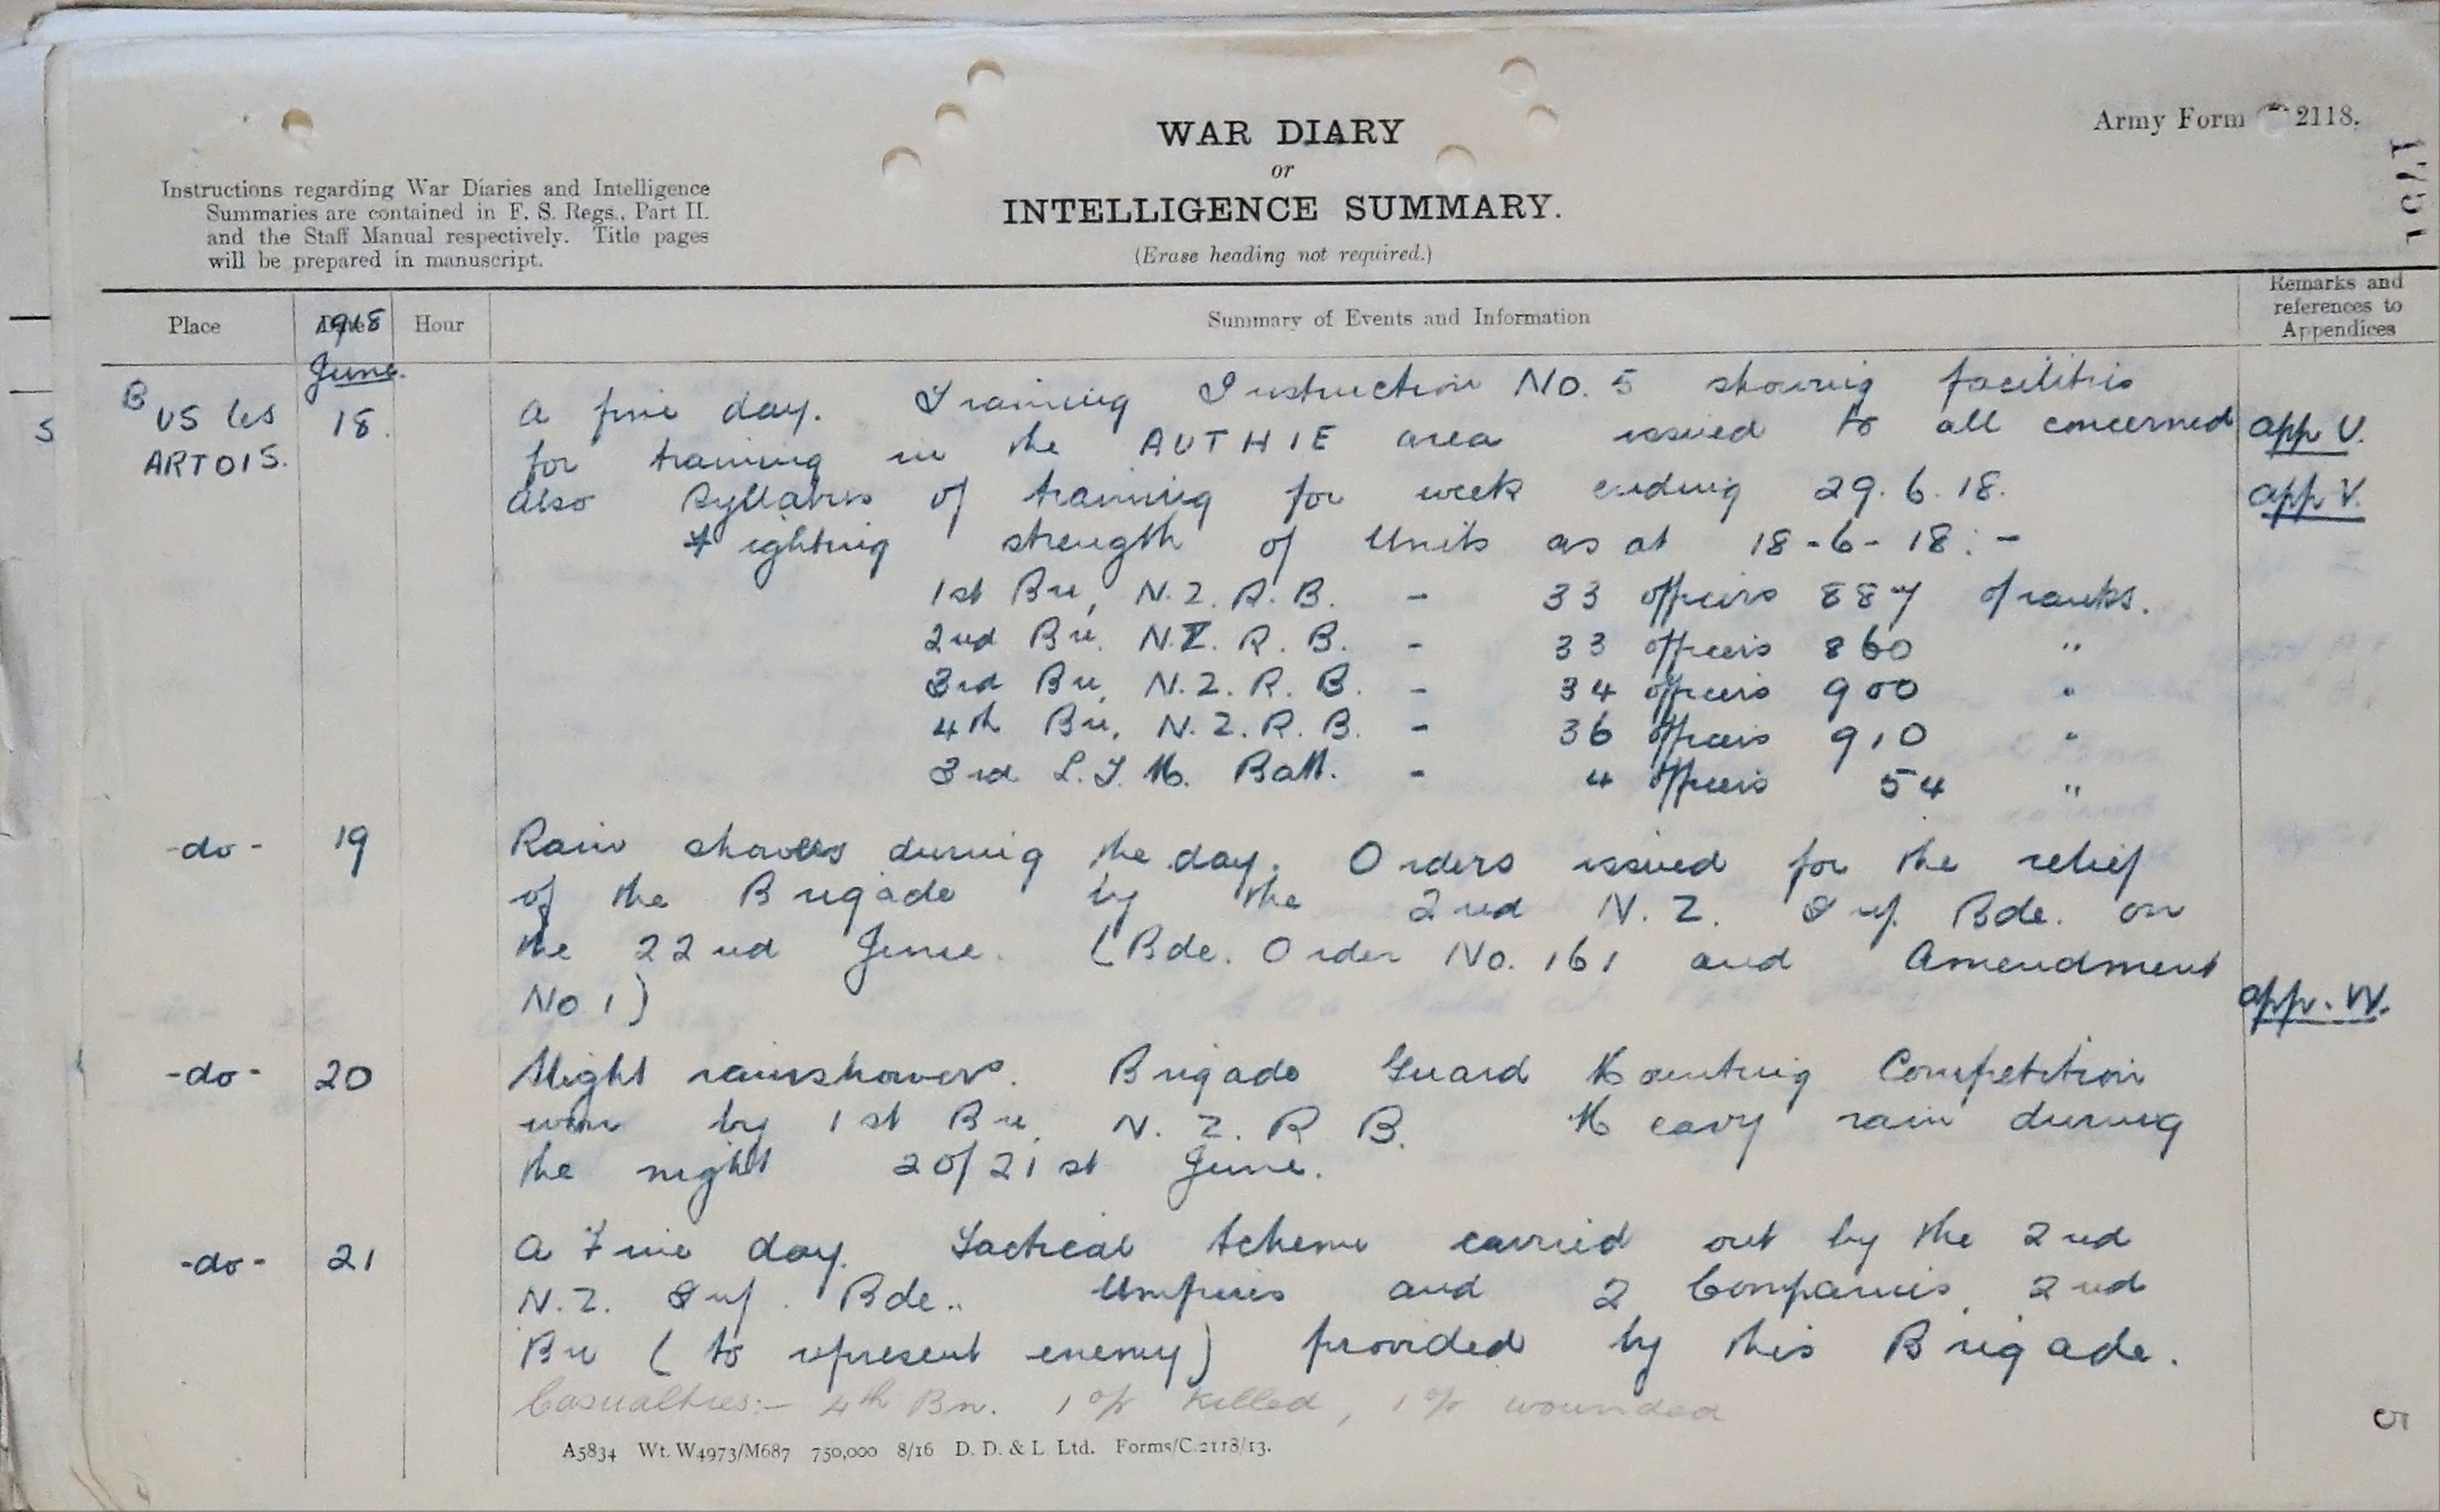 Army Form 2118.
WAR DIARY
or
INTELLIGENCE SUMMARY.
(Erase heading not required.)
Instructions regarding War Diaries and Intelligence
Summaries are contained in F. S. Regs., Part II.
and the Staff Manual respectively. Title pages
will be prepared in manuscript.
Place 1918 Hour Summary of Events and Information Remarks and references to Appendices
June.
BUS les ARTOIS. 18. A fine day. Training Instruction No. 5 showing facilities
for training in the AUTHIE area issued to all concerned app U.
Also Syllabus of training for week ending 29.6.18. app V.
Fighting strength of Units as at 18-6-18:-
1st Bn, N.Z.R.B. - 33 officers 887 o/ranks.
2nd Bn. N.Z.R.B. - 33 officers 860 "
3rd Bn, N.Z.R.B. - 34 officers 900 "
4th Bn, N.Z.R.B. - 36 officers 910 "
3rd L.T.M. Batt. - 4 officers 54 "
-do- 19 Rain showers during the day. Orders issued for the relief
of the Brigade by the 2nd N.Z. Inf. Bde. on
the 22nd June. (Bde. Order No. 161 and Amendment
No 1) app. W.
-do- 20 Slight rainshowers. Brigade Guard Mounting Competition
won by 1st Bn. N.Z.R B. Heavy rain during
the night 20/21st June.
-do- 21 A Fine day. Tactical Scheme carried out by the 2nd
N.Z. Inf. Bde.. Umpires and 2 Companies, 2nd
Bn (to represent enemy) provided by this Brigade.
Casualties:- 4th Bn. 1 o/r killed, 1 o/r wounded
A5834 Wt. W4973/M687 750,000 8/16 D. D. & L. Ltd. Forms/C.2118/13.
5